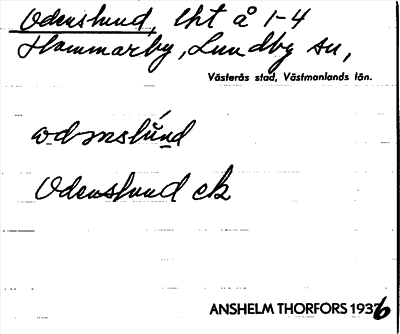 Odenslund, lht å 1-4
Hammarby, Lundby sn,
Västerås stad, Västmanlands län.
Odenslund ck
ANSHELM THORFORS 1936